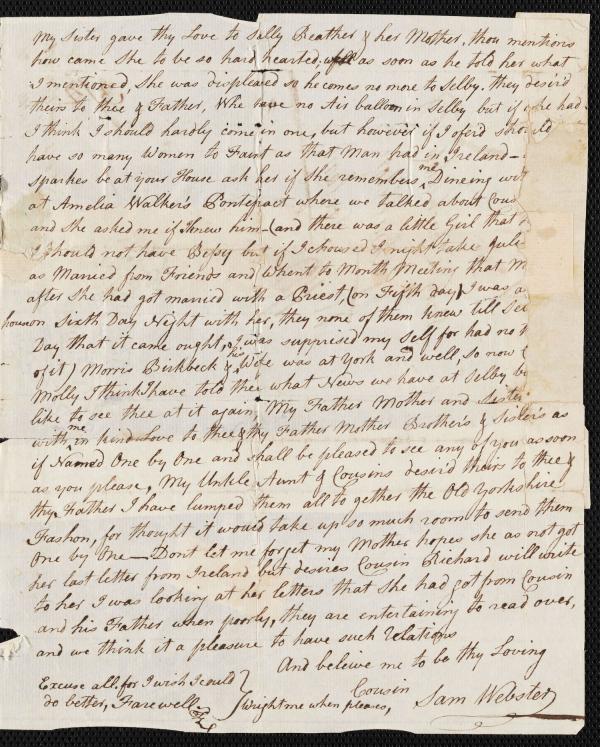 My Sister gave thy Love to Sally Beather & her Mother, thou mentions
how came She to be so hard hearted, as soon as he told her what
I mentioned, She was displeased so he comes no more to Selby. they desir'd
theirs to thee & Father, We have no Air balloon in Selby but if we had
I think I should hardly come in one, but however if I ofer'd should
have so many Women to Faint as that Man had in Ireland—
Sparkes be at your House ask her if she remembers me Dineing wit
at Amelia Walker's Pontefract where we talked about Cous
and She asked me if I knew him—(and there was a little Girl that
I should not have Bepsy but if I choused I might take
as Married from Friends and Whent to Month Meeting that M
after She had got married with a Priest, (on Fifth day) I was a
hous on Sixth Day Night with her, they none of them knew till Se
Day that it came ought, & I was supprised my self for had no
of it) Morris Birkbeck & his Wife was at York and well, so now
Molly I think I have told thee what News we have at Selby b
like to see thee at it again, My Father Mother and Sister
with me in kind Love to thee & thy Father Mother Brothers & Sisters as
if Named One by One and shall be pleased to see any of you as soon
as you please, My Unkle Aunt & Cousins desir'd theirs to thee &
thy Father I have lumped them all to gether the Old Yorkshire
Fashon, for thought it would take up so much room to send them
One by One—Dont let me forget my Mother hopes she as not got
her last letter from Ireland but desires Cousin Richard will write
to her I was looking at her letters that She had got from Cousin
and his Father when poorly, they are entertaining to read over,
and we think it a pleasure to have such relations
And beleive me to be thy Loving
Cousin
Sam Webster
Excuse all, for I wish I could
do better, Farewell
Wright me when pleases,